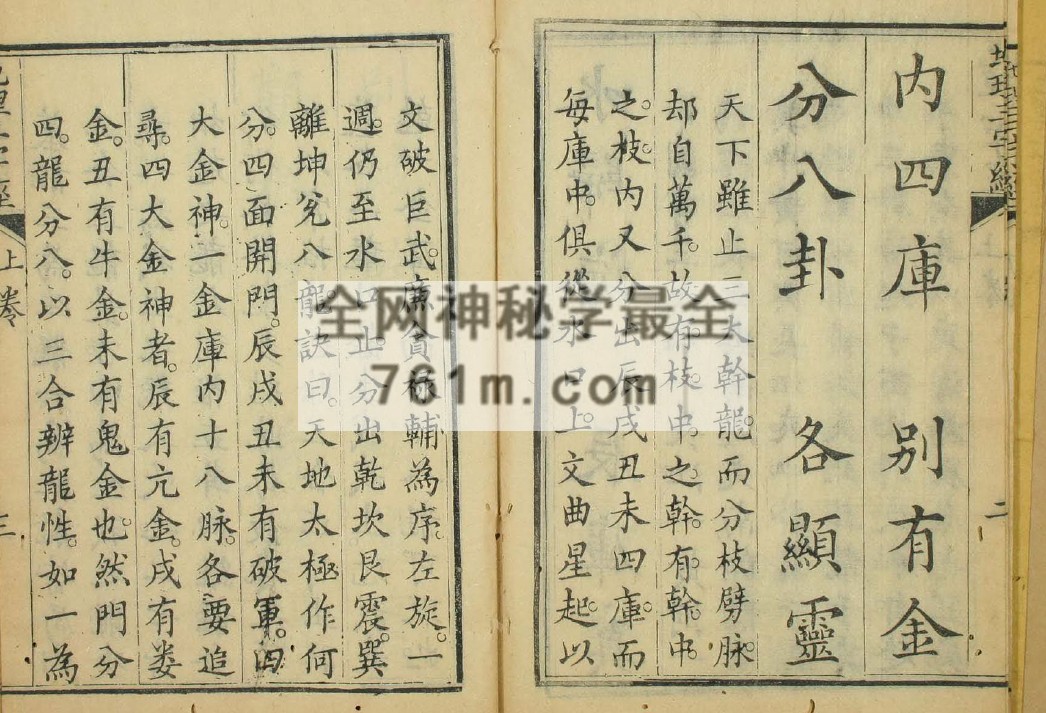 内四庫別有金
分八卦各顯靈
天下雖止三大幹龍。而分枝劈脉。
却自萬千。故有枝中之幹。有幹中
之枝。內又分出辰戌丑未四庫。而
每庫中。俱從水口上。文曲星起。以
文破巨武。廉貪極輔為序。左旋。一
週。仍至水口止。分出乾坎艮震。巽
離坤兌八龍訣曰。天地太極作何
分。四面開門。辰戌丑未有破軍。四
大金神。一金庫內十八脉。各要追
尋。四大金神者。辰有亢金。戌有娄
金。丑有牛金。未有鬼金也。然門分
四。龍分八。以三合辨龍性。如一為
二
上卷
三
全网神秘学最全
761m.com